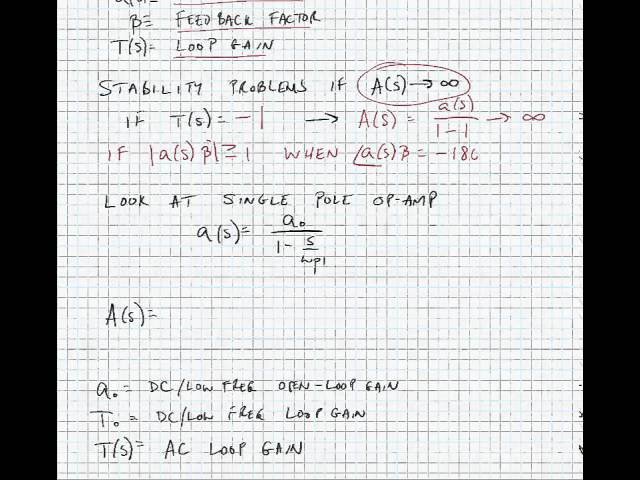 β≡ FEEDBACK FACTOR
T(s)= LOOP GAIN
STABILITY PROBLEMS IF A(s)→∞
IF T(s)= -1 → A(s) = a(s)/(1-1) → ∞
IF |a(s)β| ≥ 1 WHEN ∠a(s)β = -180
LOOK AT SINGLE POLE OP-AMP
a(s)= a₀/(1 - s/ωp1)
A(s)=
a₀ = DC/LOW FREQ OPEN-LOOP GAIN
T₀ = DC/LOW FREQ LOOP GAIN
T(s)= AC LOOP GAIN